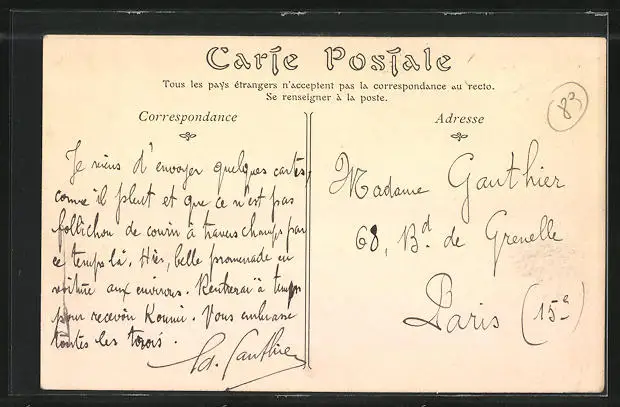 Carte Postale
Tous les pays étrangers n'acceptent pas la correspondance au recto.
Se renseigner à la poste.
Correspondance
Je viens d'envoyer quelques cartes,
comme il pleut et que ce n'est pas
follichon de courir à travers champs par
ce temps là. Hier, belle promenade en
voiture aux environs. Rentrerai à temps
pour recevoir . Vous embrasse
toutes les trois.
Ed. Gauthier
Adresse
83
Madame Gauthier
68, Bd. de Grenelle
Paris (15e)